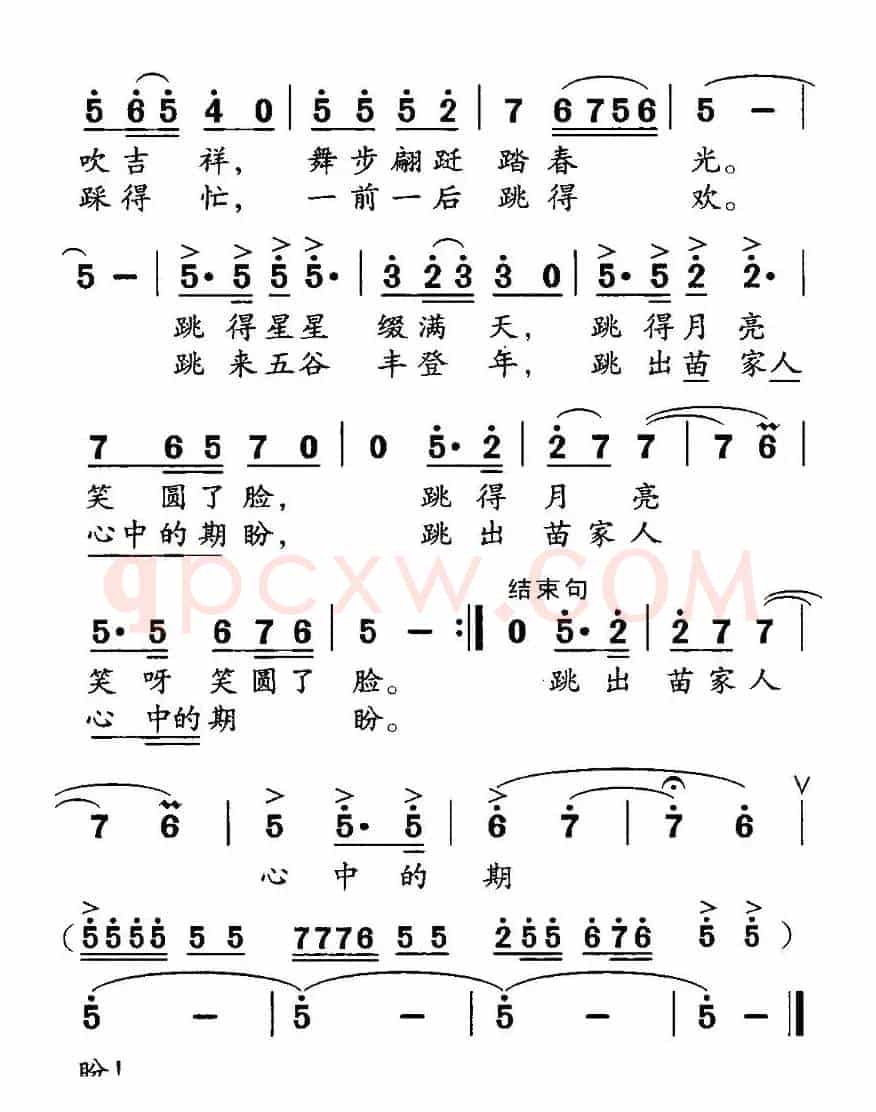 5 6 5 4 0 | 5 5 5 2 | 7 6 7 5 6 | 5 – |
吹吉 祥， 舞步翩跹 踏春 光。
踩得 忙， 一前一后 跳得 欢。
5 – | 5· 5 5 5· | 3 2 3 3 0 | 5· 5 2 2· |
跳得星星 缀满 天， 跳得月 亮
跳来五谷 丰登 年， 跳出苗 家人
7 6 5 7 0 | 0 5· 2 | 2 7 7 | 7 6 |
笑 圆了脸， 跳得 月 亮
心中的期盼， 跳出 苗家人
qpcxw.COM
结束句
5· 5 6 7 6 | 5 – :| 0 5· 2 | 2 7 7 |
笑 呀 笑圆了 脸。 跳出 苗家人
心 中的期 盼。
7 6 | 5 5· 5 | 6 7 | 7 6 |
心 中 的 期
( 5 5 5 5 5 5 7 7 7 6 5 5 2 5 5 6 7 6 5 5 )
5 – | 5 – | 5 – | 5 – ||
盼！